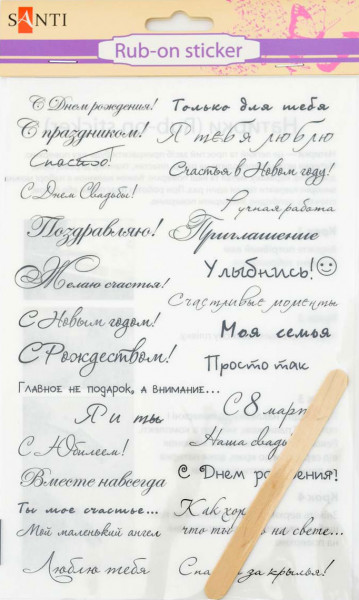 SANTI
Rub-on sticker
С Днем рождения!
С праздником!
Спасибо!
С Днем Свадьбы!
Поздравляю!
Желаю счастья!
С Новым годом!
С Рождеством!
Главное не подарок, а внимание...
Я и ты
С Юбилеем!
Вместе навсегда
Ты мое счастье...
Мой маленький ангел
Люблю тебя
Только для тебя
Я тебя люблю
Счастья в Новом году!
Ручная работа
Приглашение
Улыбнись!
Счастливые моменты
Моя семья
Просто так
С 8 март
Наша свадь
С Днем рождения!
Как хор
что ты на свете...
за крылья!